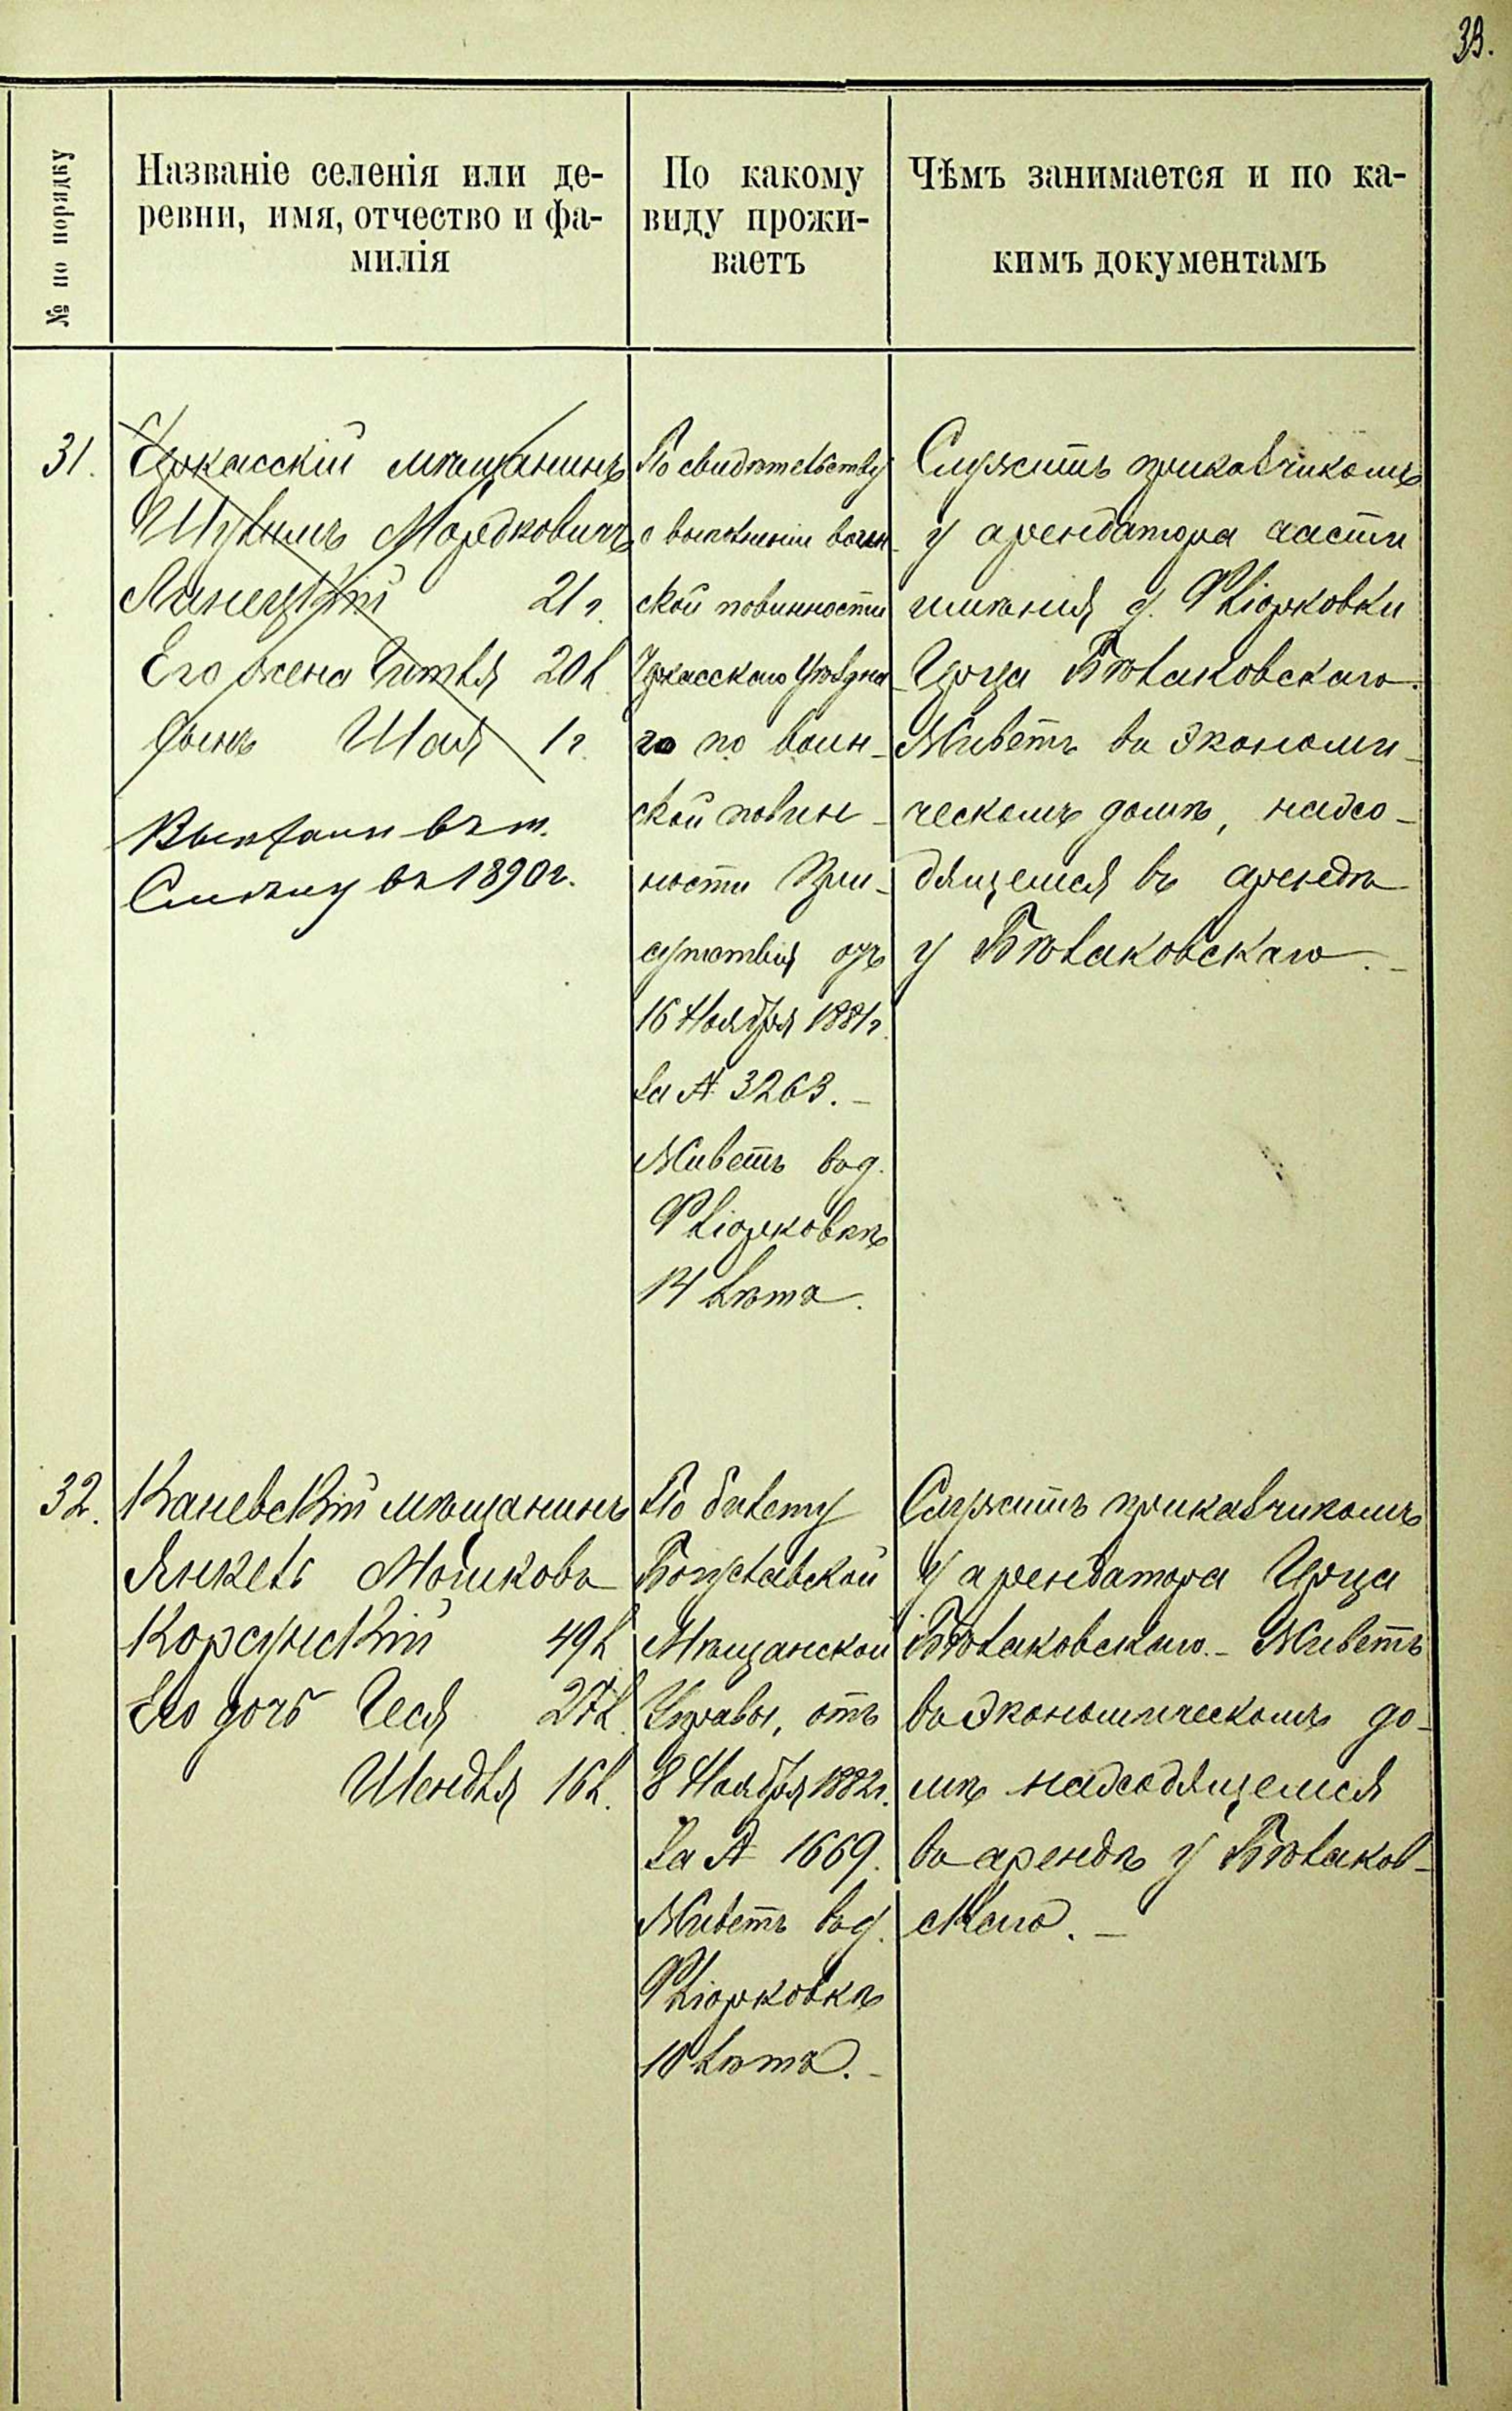 33.
№ по порядку
Названіе селенія или де-
ревни, имя, отчество и фа-
милія
По какому
виду прожи-
ваетъ
Чѣмъ занимается и по ка-
кимъ документамъ
31.
Черкасскій мѣщанинъ
Мордковичъ
Линецкій 21 г.
Его жена Гитля 20 л.
сынъ Шая 1 г.
Выѣхали въ м.
Смѣлу въ 1890 г.
По свидѣтельству
о выполненіи воин-
ской повинности
Черкасскаго Уѣздна-
го по воин-
ской повин-
ности При-
сутствія отъ
16 Ноября 1881 г.
за № 3263. –
Живетъ въ д.
Ѳліорковкѣ
14 лѣтъ.
Служитъ приказчикомъ
у арендатора части
имѣнія д. Ѳліорковки
Ицка Бѣлаковскаго.
Живетъ въ экономи-
ческомъ домѣ, нахо-
дящемся въ арендѣ
у Бѣлаковскаго. –
32.
Каневскій мѣщанинъ
Янкель Мошковъ
Корсунскій 49 л.
Его дочь Геся 27 л.
Шендля 16 л.
По билету
Богуславской
Мѣщанской
Управы, отъ
8 Ноября 1882 г.
за № 1669.
Живетъ въ д.
Ѳліорковкѣ
10 лѣтъ. –
Служитъ приказчикомъ
у арендатора Ицка
Бѣлаковскаго. – Живетъ
въ экономическомъ до-
мѣ находящемся
въ арендѣ у Бѣлаков-
скаго. –